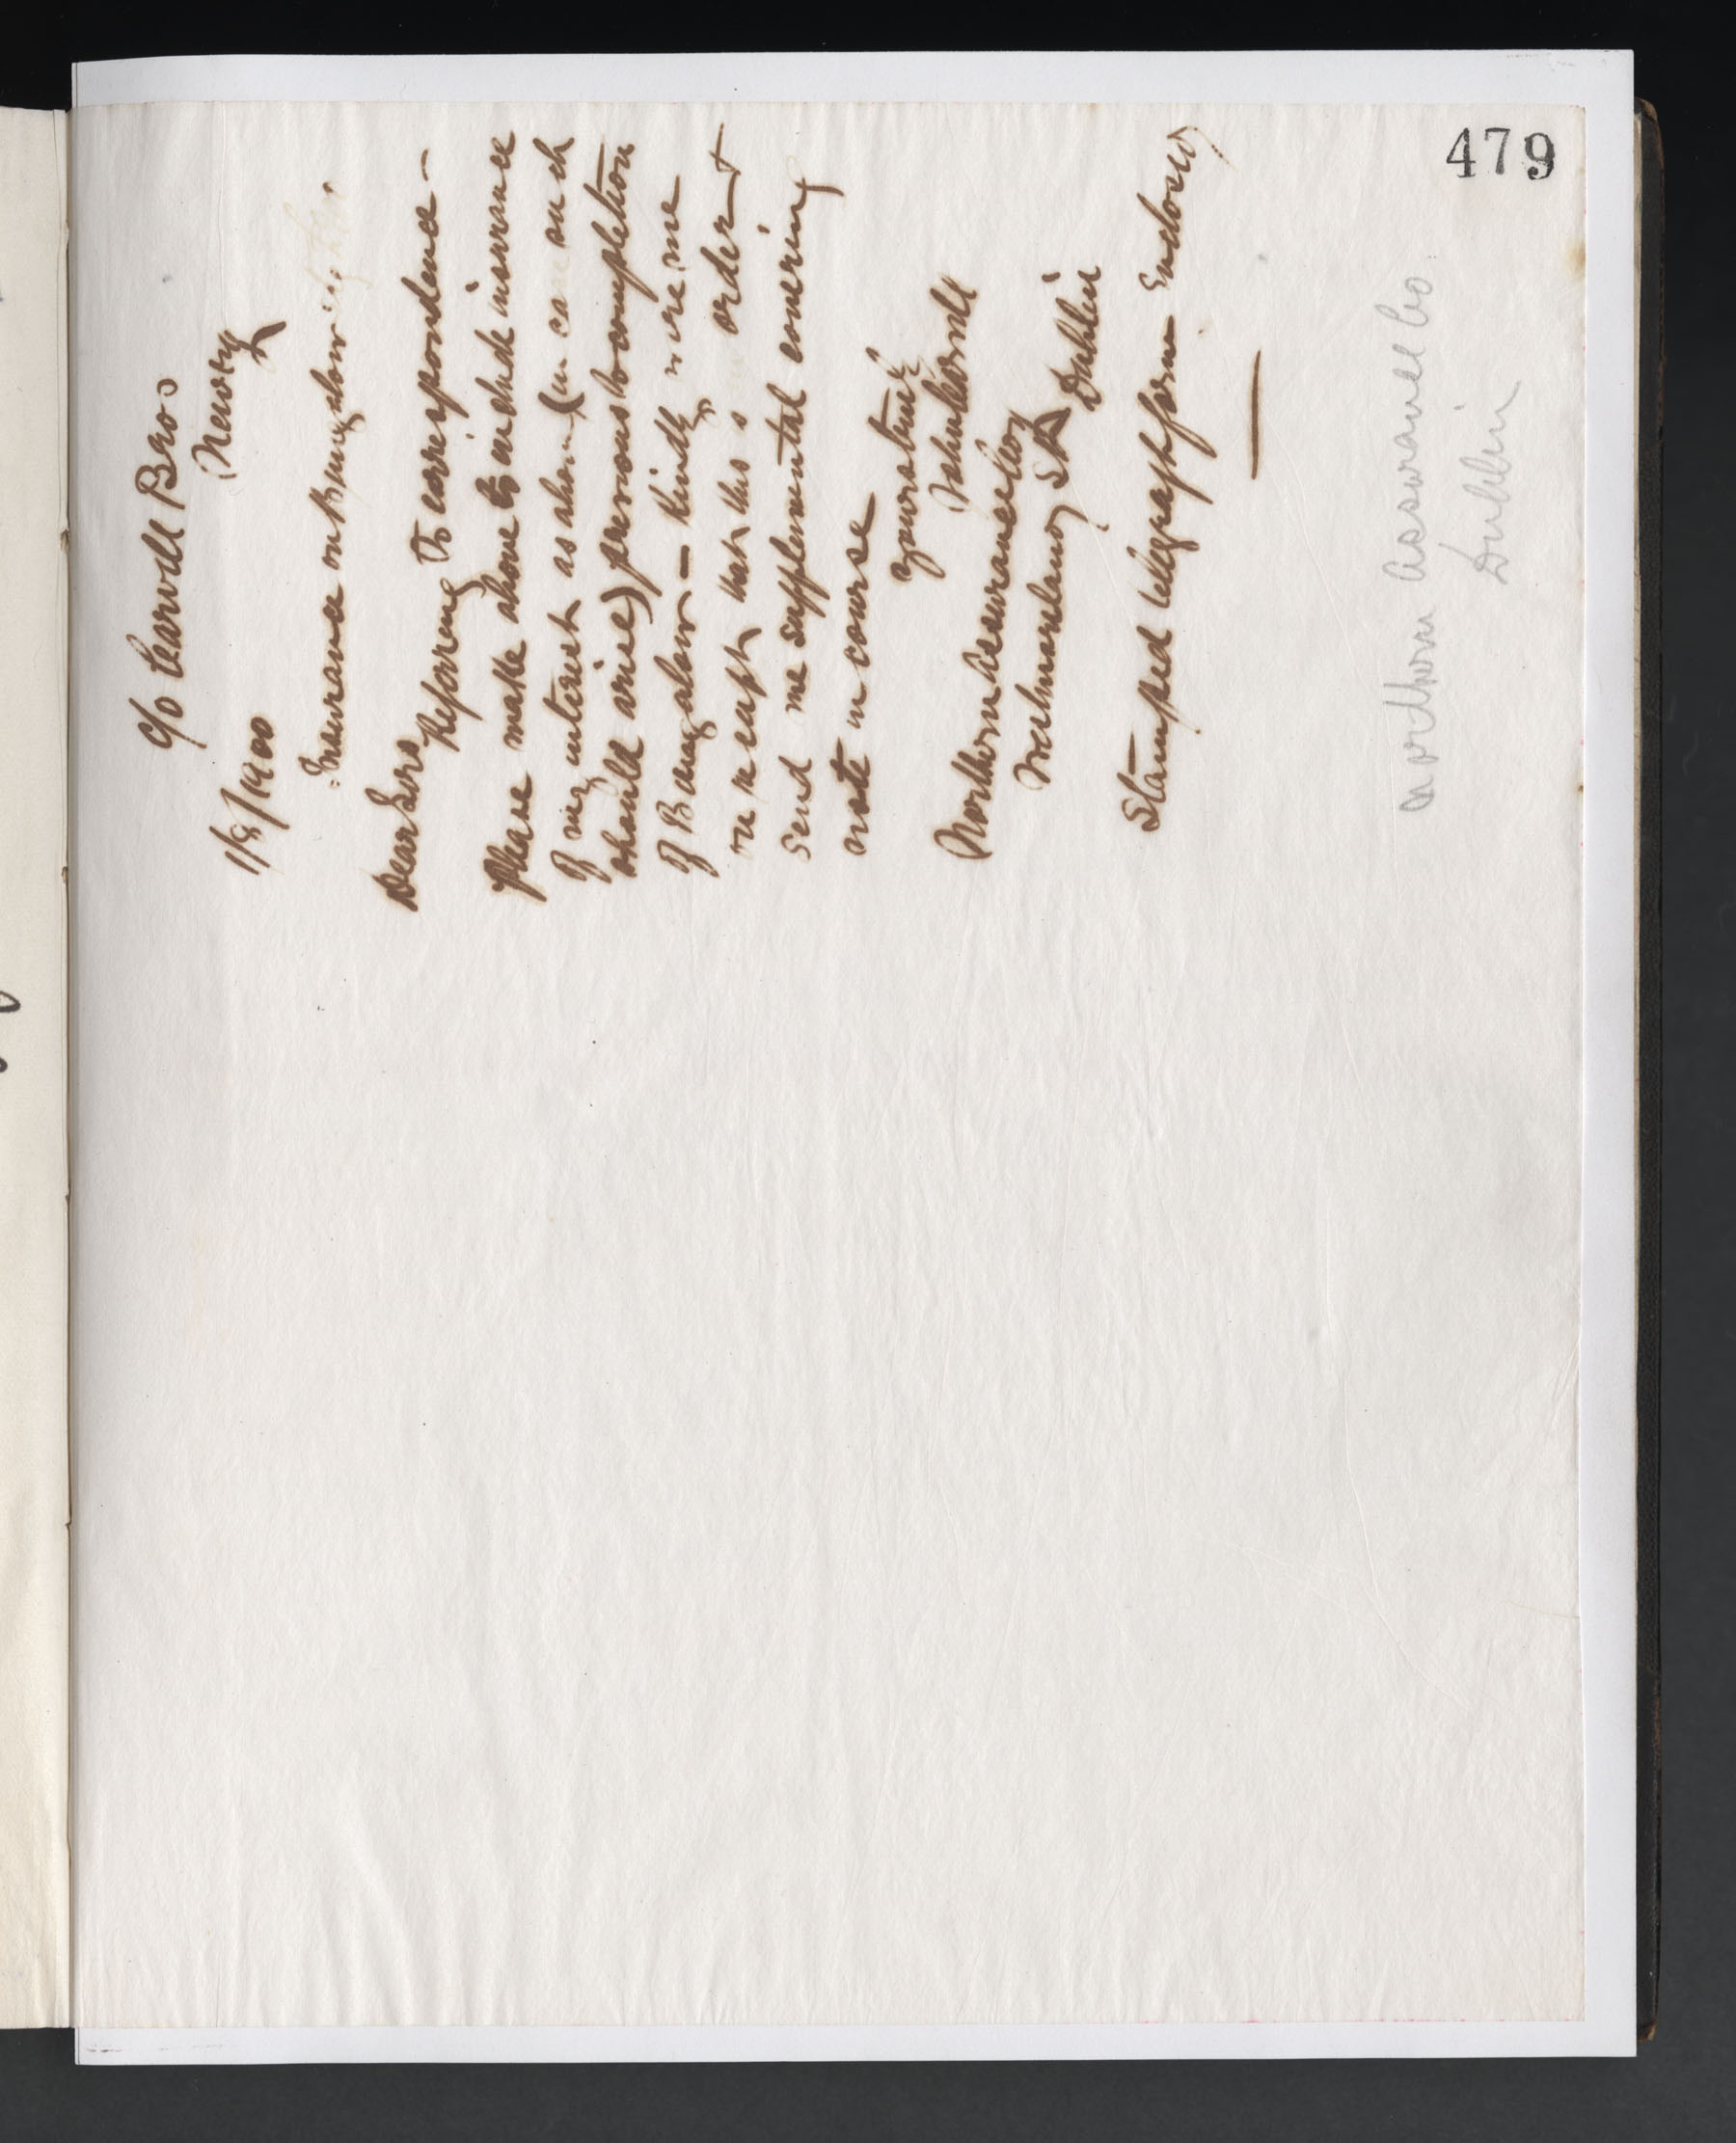 479
c/o Carvill Bros
Newry
1/8/1900
Insurance on Bungalow
Dear Sirs
Referring To correspondence —
Please make above to include insurance
of my interest as above (in ca such
should arise) previous to completion
of Bungalow — Kindly wire me
on receipt that this is order &
send me supplemental covering
note in course
yours truly
Northern Assurance Coy
Westmoreland St
Dublin
Stamped telegraph form Enclosed
Northern Assurance Co
Dublin